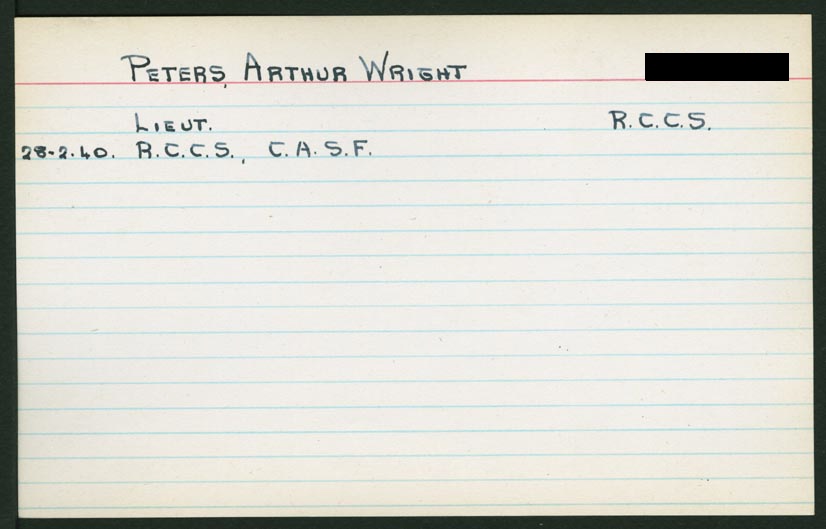 PETERS, ARTHUR WRIGHT
LIEUT. R.C.C.S.
28-2-40. R.C.C.S., C.A.S.F.